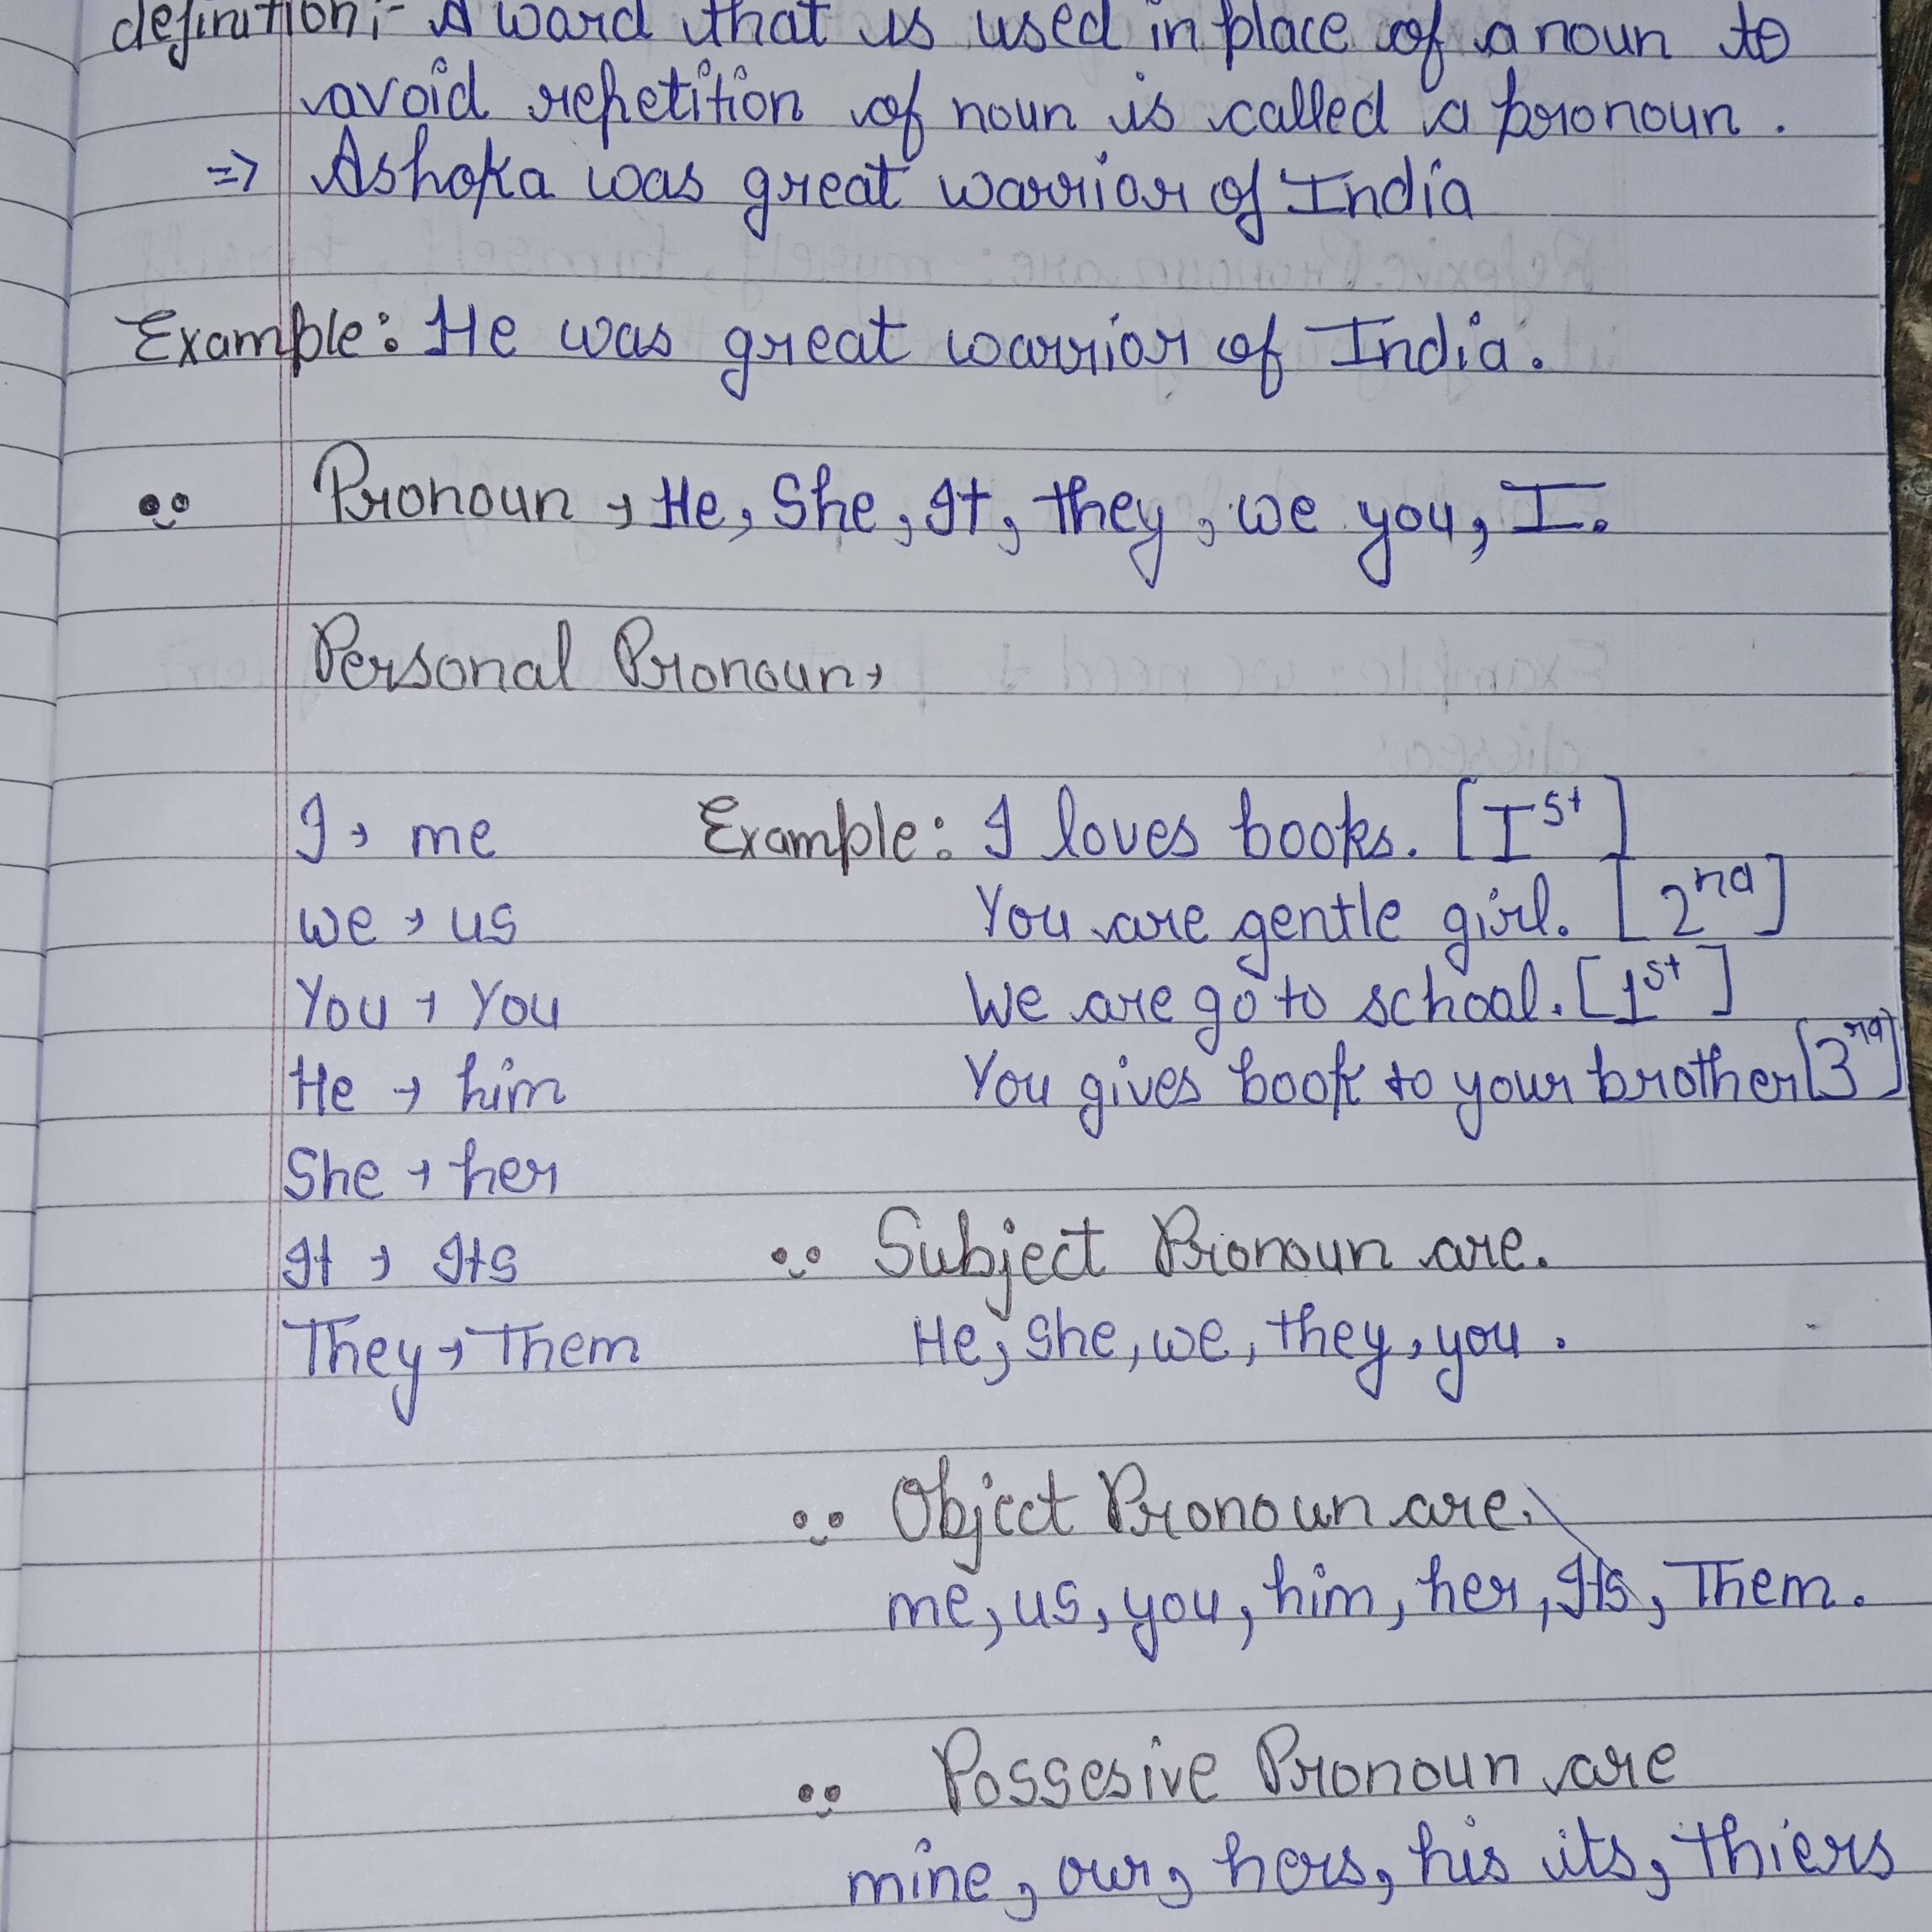 definition;- A word that is used in place of a noun to
avoid repetition of noun is called a pronoun.
=> Ashoka was great warrior of India
Example: He was great warrior of India.
Pronoun → He, She, It, they, we you, I.
Personal Pronoun→
I → me Example: I loves books. [Ist]
we → us You are gentle girl. [2nd]
You → You We are go to school. [1st]
He → him You gives book to your brother [3rd]
She → her
It → Its Subject Pronoun are.
They → Them He, She, we, they, you.
Object Pronoun are.
me, us, you, him, her, Its, Them.
Possesive Pronoun are
mine, our, hers, his its, thiers